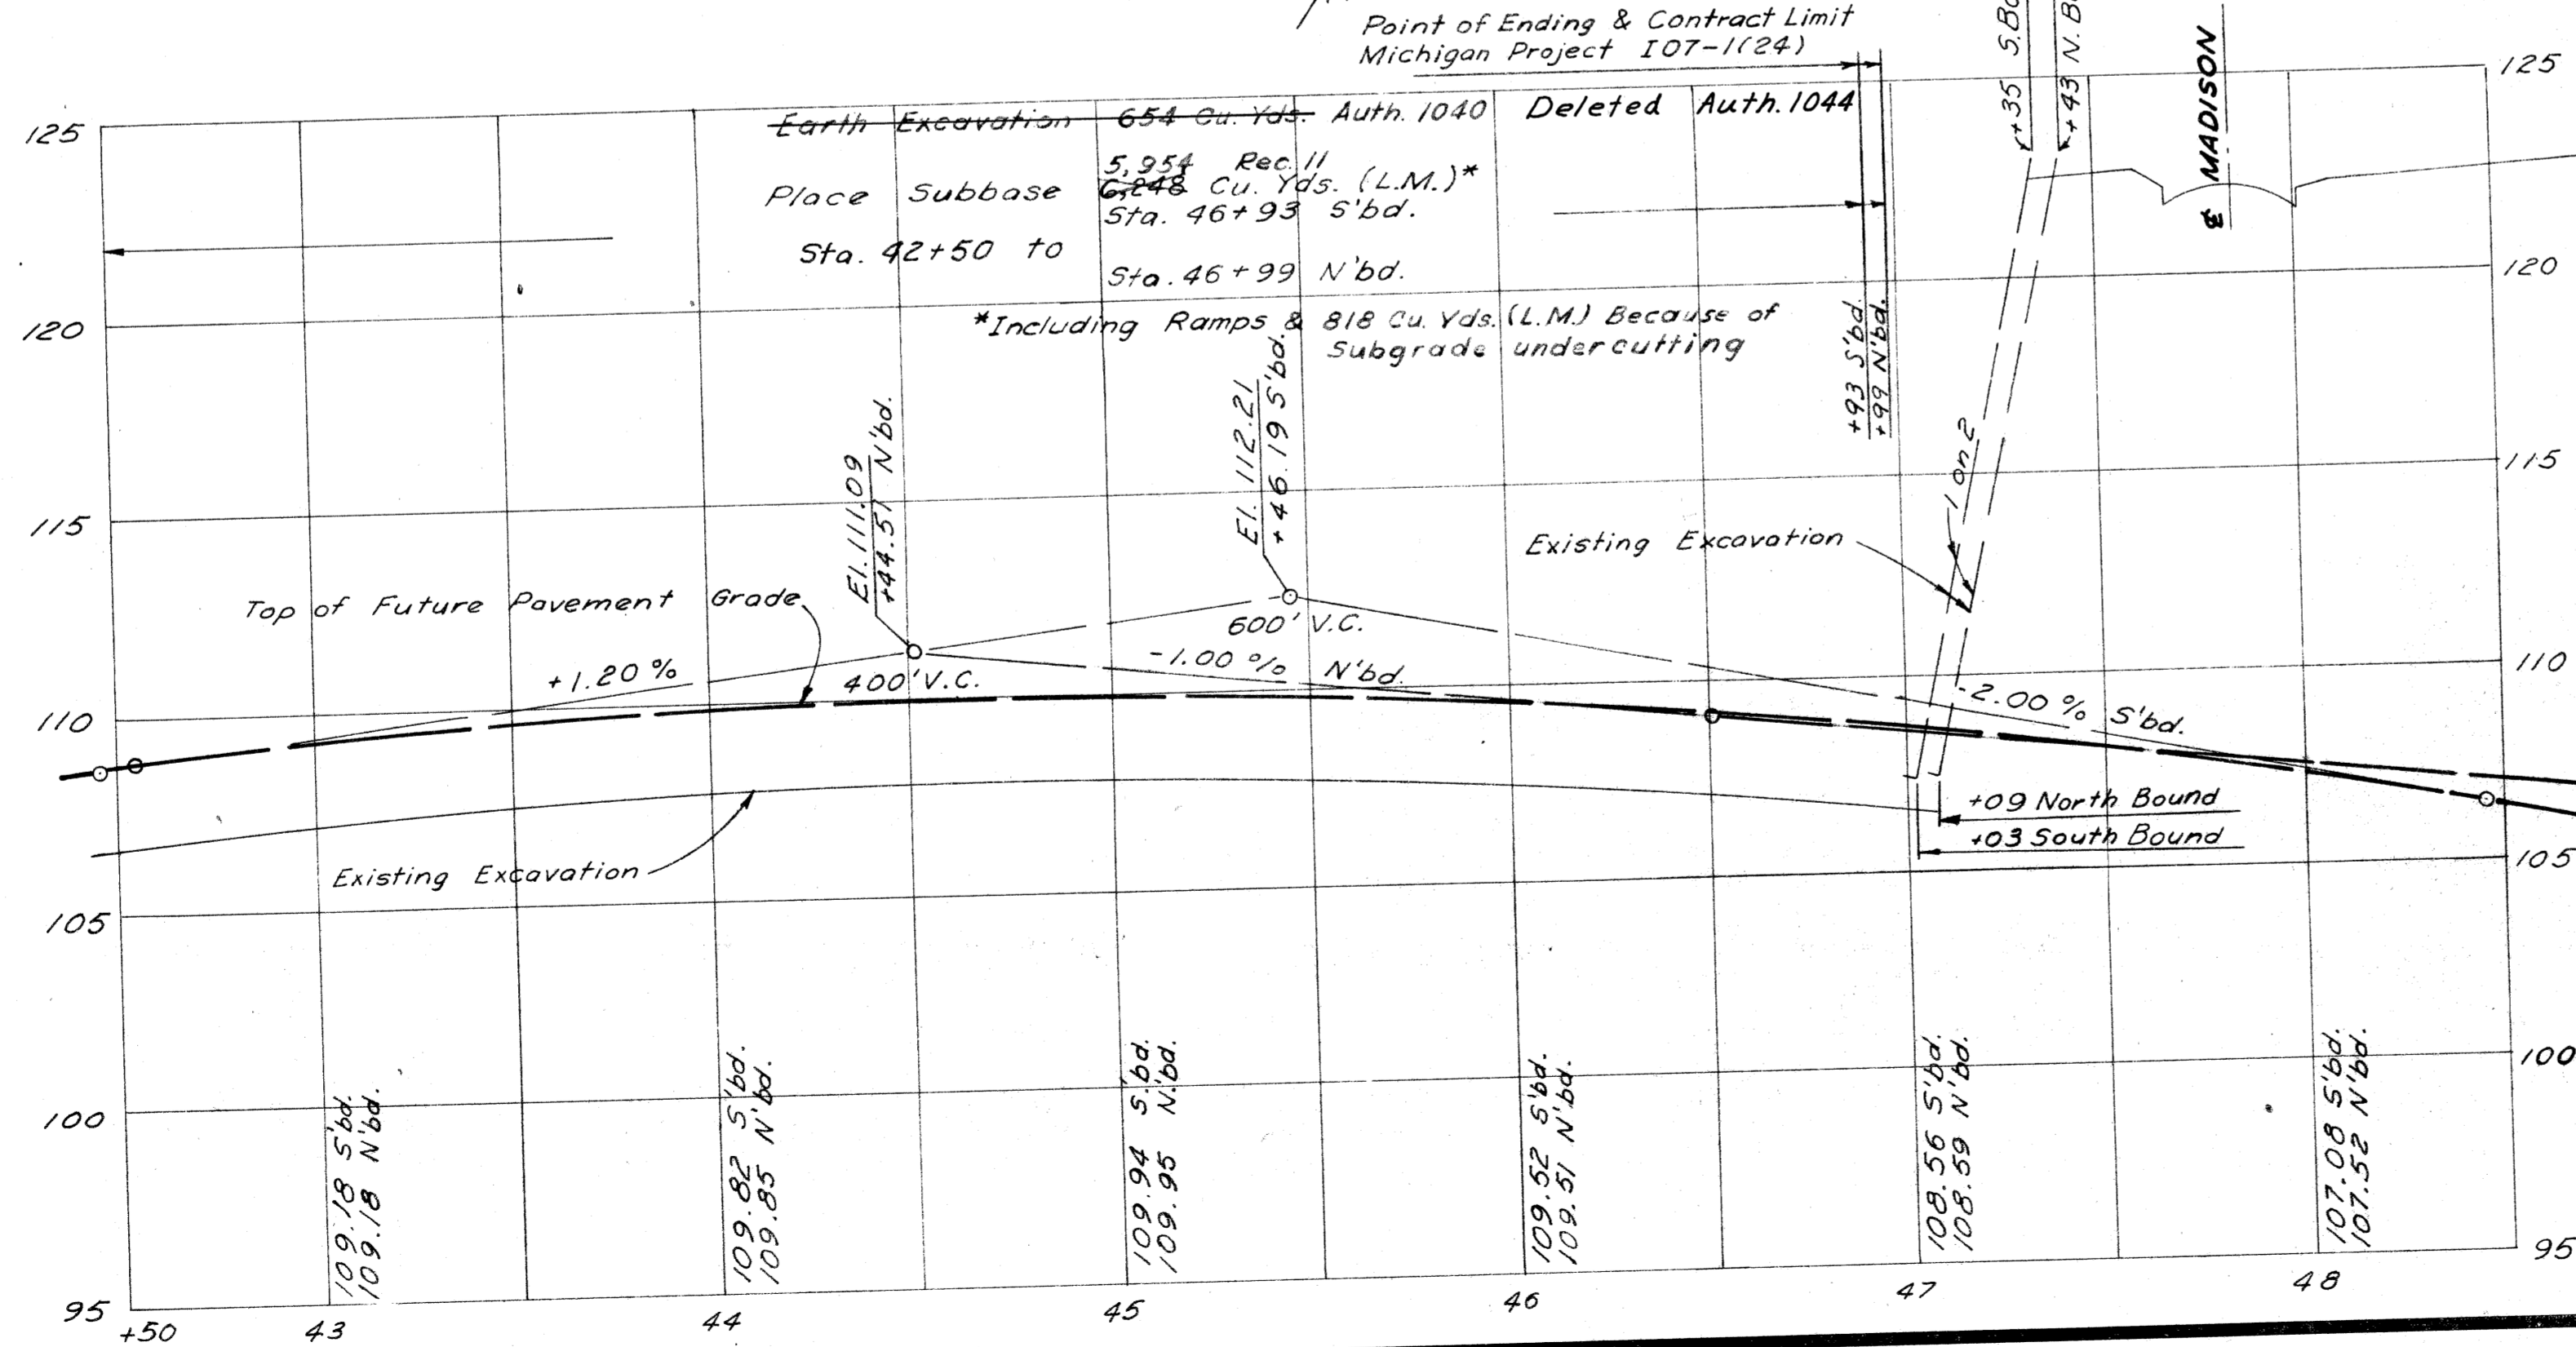 Point of Ending & Contract Limit
Michigan Project I07-1(24)
+35 S.Bo
+43 N. B
℄ MADISON
125
125
Earth Excavation 654 Cu. Yds. Auth. 1040 Deleted Auth. 1044
5,954 Rec. 11
Place Subbase 6,248 Cu. Yds. (L.M.)*
Sta. 46+93 S'bd.
Sta. 42+50 to
Sta. 46+99 N'bd.
120
120
*Including Ramps & 818 Cu. Yds. (L.M.) Because of
Subgrade undercutting
+93 S'bd.
+99 N'bd.
El. 111.09
+44.51 N'bd.
El. 112.21
+46.19 S'bd.
1 on 2
115
115
Existing Excavation
Top of Future Pavement Grade
600' V.C.
+1.20 %
400' V.C.
-1.00 % N'bd.
-2.00 % S'bd.
110
110
+09 North Bound
+03 South Bound
Existing Excavation
105
105
100
100
109.18 S'bd.
109.18 N'bd.
109.82 S'bd.
109.85 N'bd.
109.94 S.'bd.
109.95 N.'bd.
109.52 S'bd.
109.51 N'bd.
108.56 S'bd.
108.59 N'bd.
107.08 S'bd.
107.52 N'bd.
95
95
+50 43 44 45 46 47 48